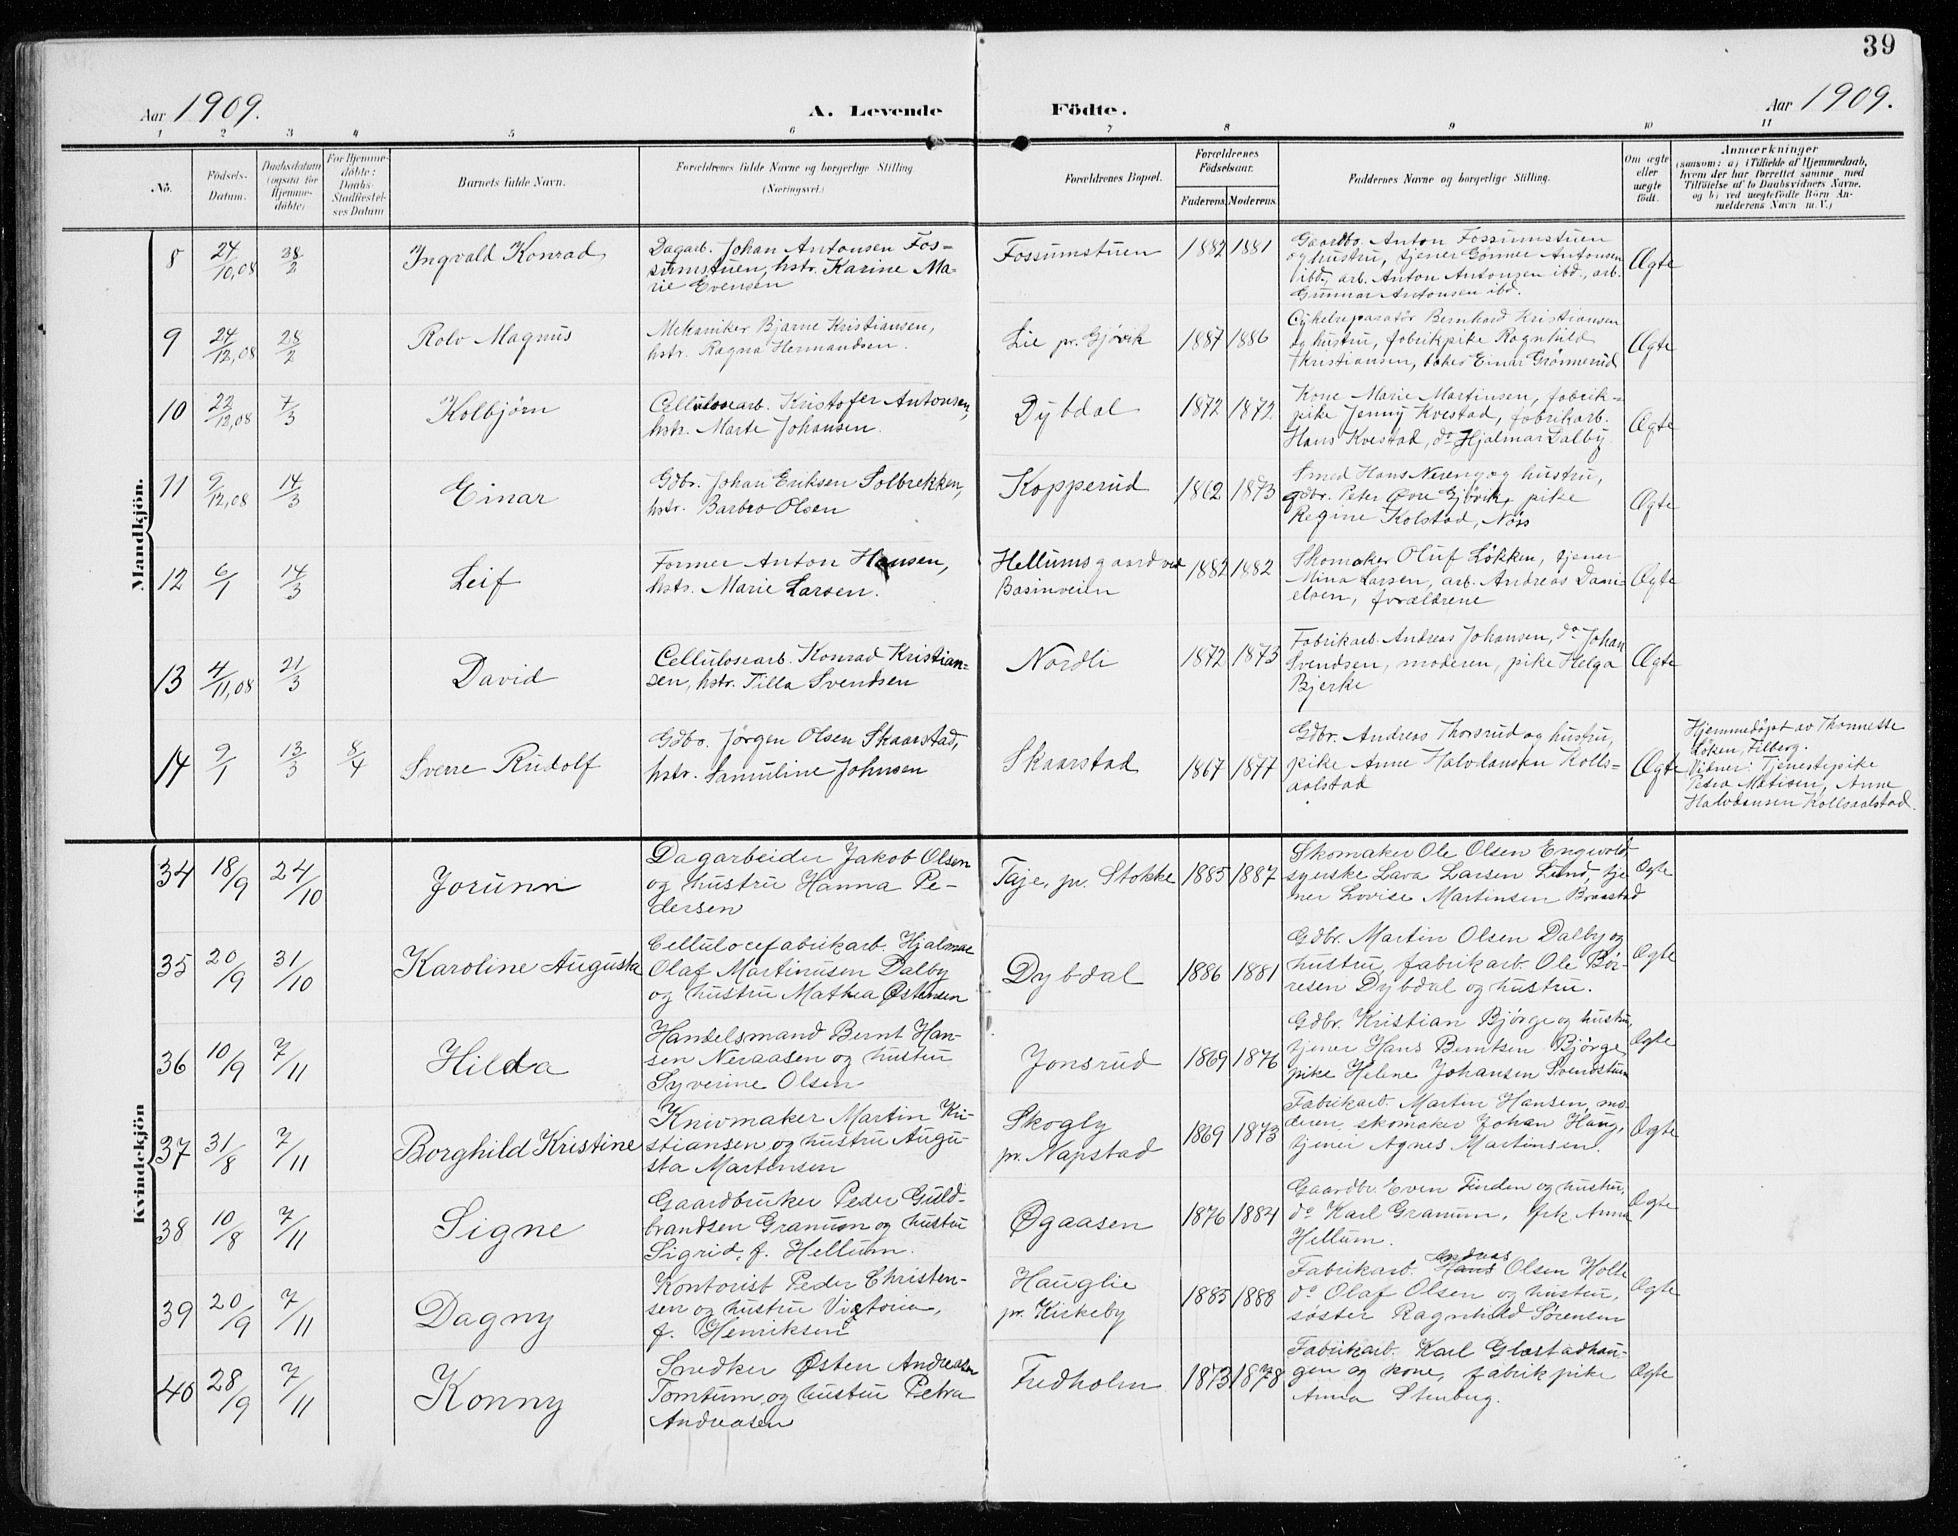 39
Aar 1909.
A. Levende Födte.
Aar 1909.
1 2 3 4 5 6 7 8 9 10 11
No.
Födsels-Datum.
Daabsdatum (ogsaa for Hjemmedöbte)
For Hjemmedöbte: Daabs-Stadfæstelses Datum
Barnets fulde Navn.
Forældrenes fulde Navne og borgerlige Stilling (Næringsvei.)
Forældrenes Bopæl.
Forældrenes Födselsaar.
Faderens. Moderens.
Faddernes Navne og borgerlige Stilling.
Om ægte eller uægte födt.
Anmærkninger
(saasom: a) i Tilfælde af Hjemmedaab,
hvem der har forrettet samme med
Tilföielse af to Daabsvidners Navne,
og b) ved uægtefödte Börn An-
melderens Navn m. V.)
Mandkjön.
8 24/10,08 28/2 Ingvald Konrad
Dagarb. Johan Antonsen Fos-
sumstuen, hstr. Karine Ma-
rie Evensen
Fossumstuen 1882 1881
Gaardbr. Anton Fossumstuen
og hustru, tjener Gønner Antonsen
ibd., arb. Anton Antonsen ibd., arb.
Gunnar Antonsen ibd.
Ægte
9 24/12,08 28/2 Rolv Magnus
Mekaniker Bjarne Kristiansen,
hstr. Ragna Hermandsen.
Lie pr. Gjøvik 1887 1886
Cykelreparatør Bernhard Kristiansen
og hustru, fabrikpike Ragnhild
Kristiansen, Einar Grønnerud
Ægte
10 22/12,08 7/3 Kolbjørn
Cellulosearb. Kristofer Antonsen,
hstr. Marte Johansen.
Dybdal 1872 1872
Kone Marie Martinsen, fabrik-
pike Jenny Kvestad, fabrikarb.
Hans Kvestad, do Hjalmar Dalby.
Ægte
11 9/12,08 14/3 Einar
Gdbr. Johan Eriksen Solbrekken,
hstr. Barbro Olsen
Kopperud 1862 1873
Smed Hans Nereng og hustru,
gdbr. Peter Øvre Gjøvik, pike
Regine Kolstad, Nøss
Ægte
12 6/1 14/3 Leif
Former Anton Hansen,
hstr. Marie Larsen.
Hellumsgaard ved
Basinveien
1882 1882
Skomaker Oluf Løkken, tjener
Mina Larsen, arb. Andreas Dani-
elsen, forældrene
Ægte
13 4/11,08 21/3 David
Cellulosearb. Konrad Kristian-
sen, hstr. Tilla Svendsen
Nordli 1872 1873
Fabrikarb. Andreas Johansen, do Johan
Svendsen, moderen, pike Helga
Bjerke
Ægte
14 9/1 13/3 8/4 Sverre Rudolf
Gdbr. Jørgen Olsen Skaarstad,
hstr. Samuline Johnsen
Skaarstad 1867 1877
Gdbr. Andreas Thorsrud og hustru,
pike Anne Halvdansen Kolls-
aalstad
Ægte
Hjemmedøpt av Thonnette
Løken, Filberg.
Vidner: Tjenestepike
Petra Matisen, Anne
Halvdansen Kollsaalstad.
Kvindekjön
34 18/9 24/10 Jorunn
Dagarbeider Jakob Olsen
og hustru Hanna Pe-
dersen
Taje, pr. Stokke 1885 1887
Skomaker Ole Olsen Engevold,
syerske Lava Larsen Lund, tje
ner Lovise Martinsen Braastad
Ægte
35 20/9 31/10 Karoline Augusta
Cellulocefabrikarb. Hjalmar
Olaf Martinusen Dalby
og hustru Mathea Østensen
Dybdal 1886 1881
Gdbr. Martin Olsen Dalby og
hustru, fabrikarb. Ole Bør-
resen Dybdal og hustru.
Ægte
36 10/9 7/11 Hilda
Handelsmand Bernt Han-
sen Neraasen og hustru
Syverine Olsen
Jonsrud 1869 1876
Gdbr. Kristian Bjørge og hustru,
tjener Hans Berntsen Bjørge,
pike Helene Johansen Svendstuen
Ægte
37 31/8 7/11 Borghild Kristine
Knivmaker Martin Kri-
stiansen og hustru Augu-
sta Martensen
Skogly
pr. Napstad
1869 1873
Fabrikarb. Martin Hansen, mo-
deren, skomaker Johan Haug,
tjener Agnes Martinsen.
Ægte
38 10/8 7/11 Signe
Gaardbruker Peder Guld-
brandsen Granum og hustru
Sigrid, f. Hellum.
Øgaasen 1876 1884
Gaardbr. Even Finden og hustru,
do Karl Granum, frk Anna
Hellum.
Ægte
39 20/9 7/11 Dagny
Kontorist Peder Christen-
sen og hustru Victoria,
f. Henriksen
Hauglie
pr. Kirkeby
1885 1888
Andreas
Fabrikarb. Hans Olsen Holte
do Olaf Olsen og hustru,
søster Ragnhild Sørensen
Ægte
40 28/9 7/11 Konny
Snedker Østen Andreasen
Tomtum og hustru Petra
Andreasen
Fredholm 1873 1878
Fabrikarb. Karl Glæstadhau-
gen og kone, fabrikpike
Anna Stenberg.
Ægte